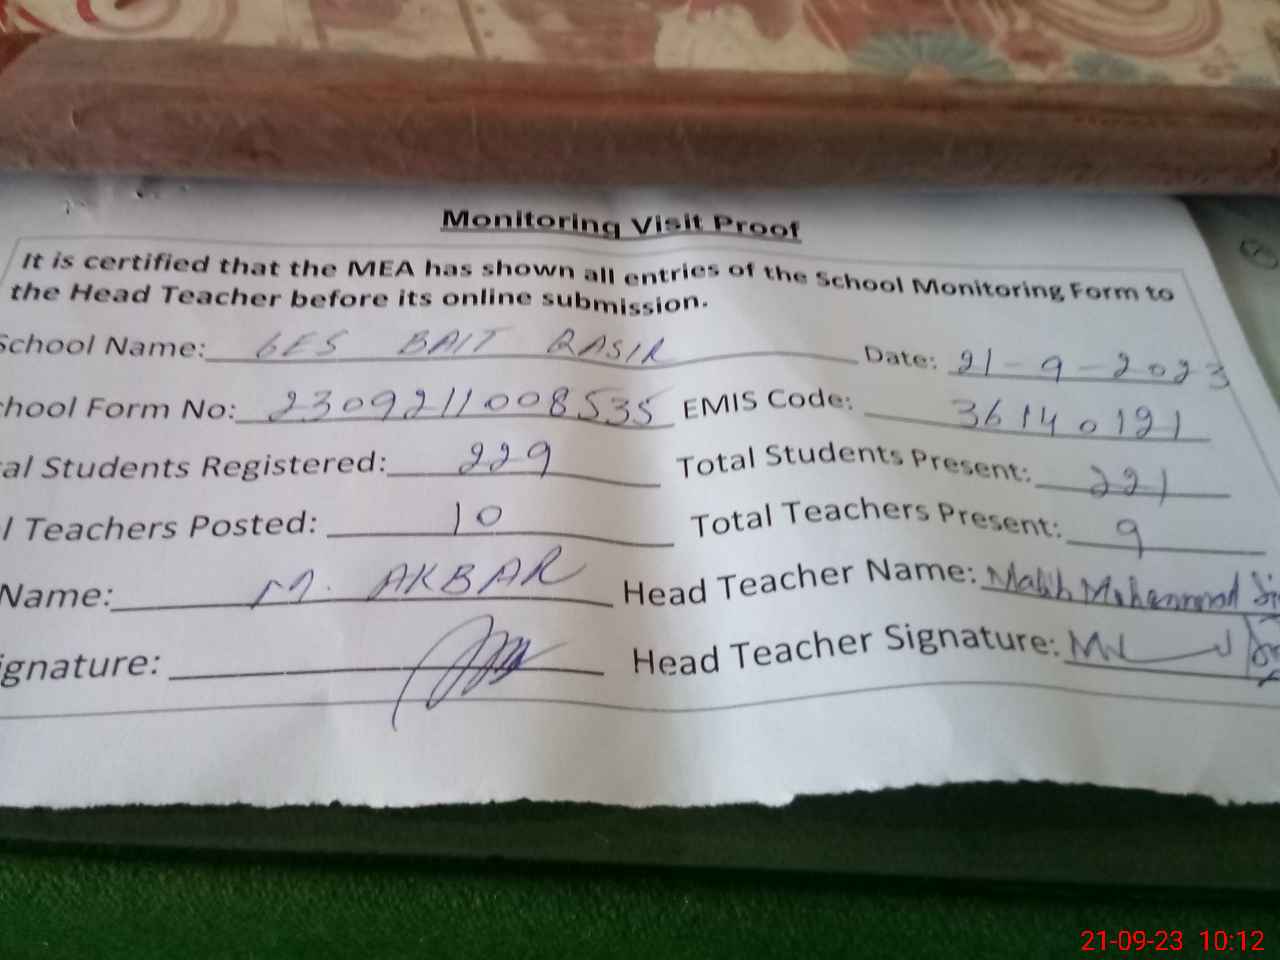 Monitoring Visit Proof
It is certified that the MEA has shown all entries of the School Monitoring Form to
the Head Teacher before its online submission.
School Name: GES BAIT QASIR Date: 21-9-2023
hool Form No: 2309211008535 EMIS Code: 36140191
al Students Registered: 229 Total Students Present: 221
l Teachers Posted: 10 Total Teachers Present: 9
Name: M. AKBAR Head Teacher Name: Malik Mohammad
ignature: Head Teacher Signature:
21-09-23 10:12